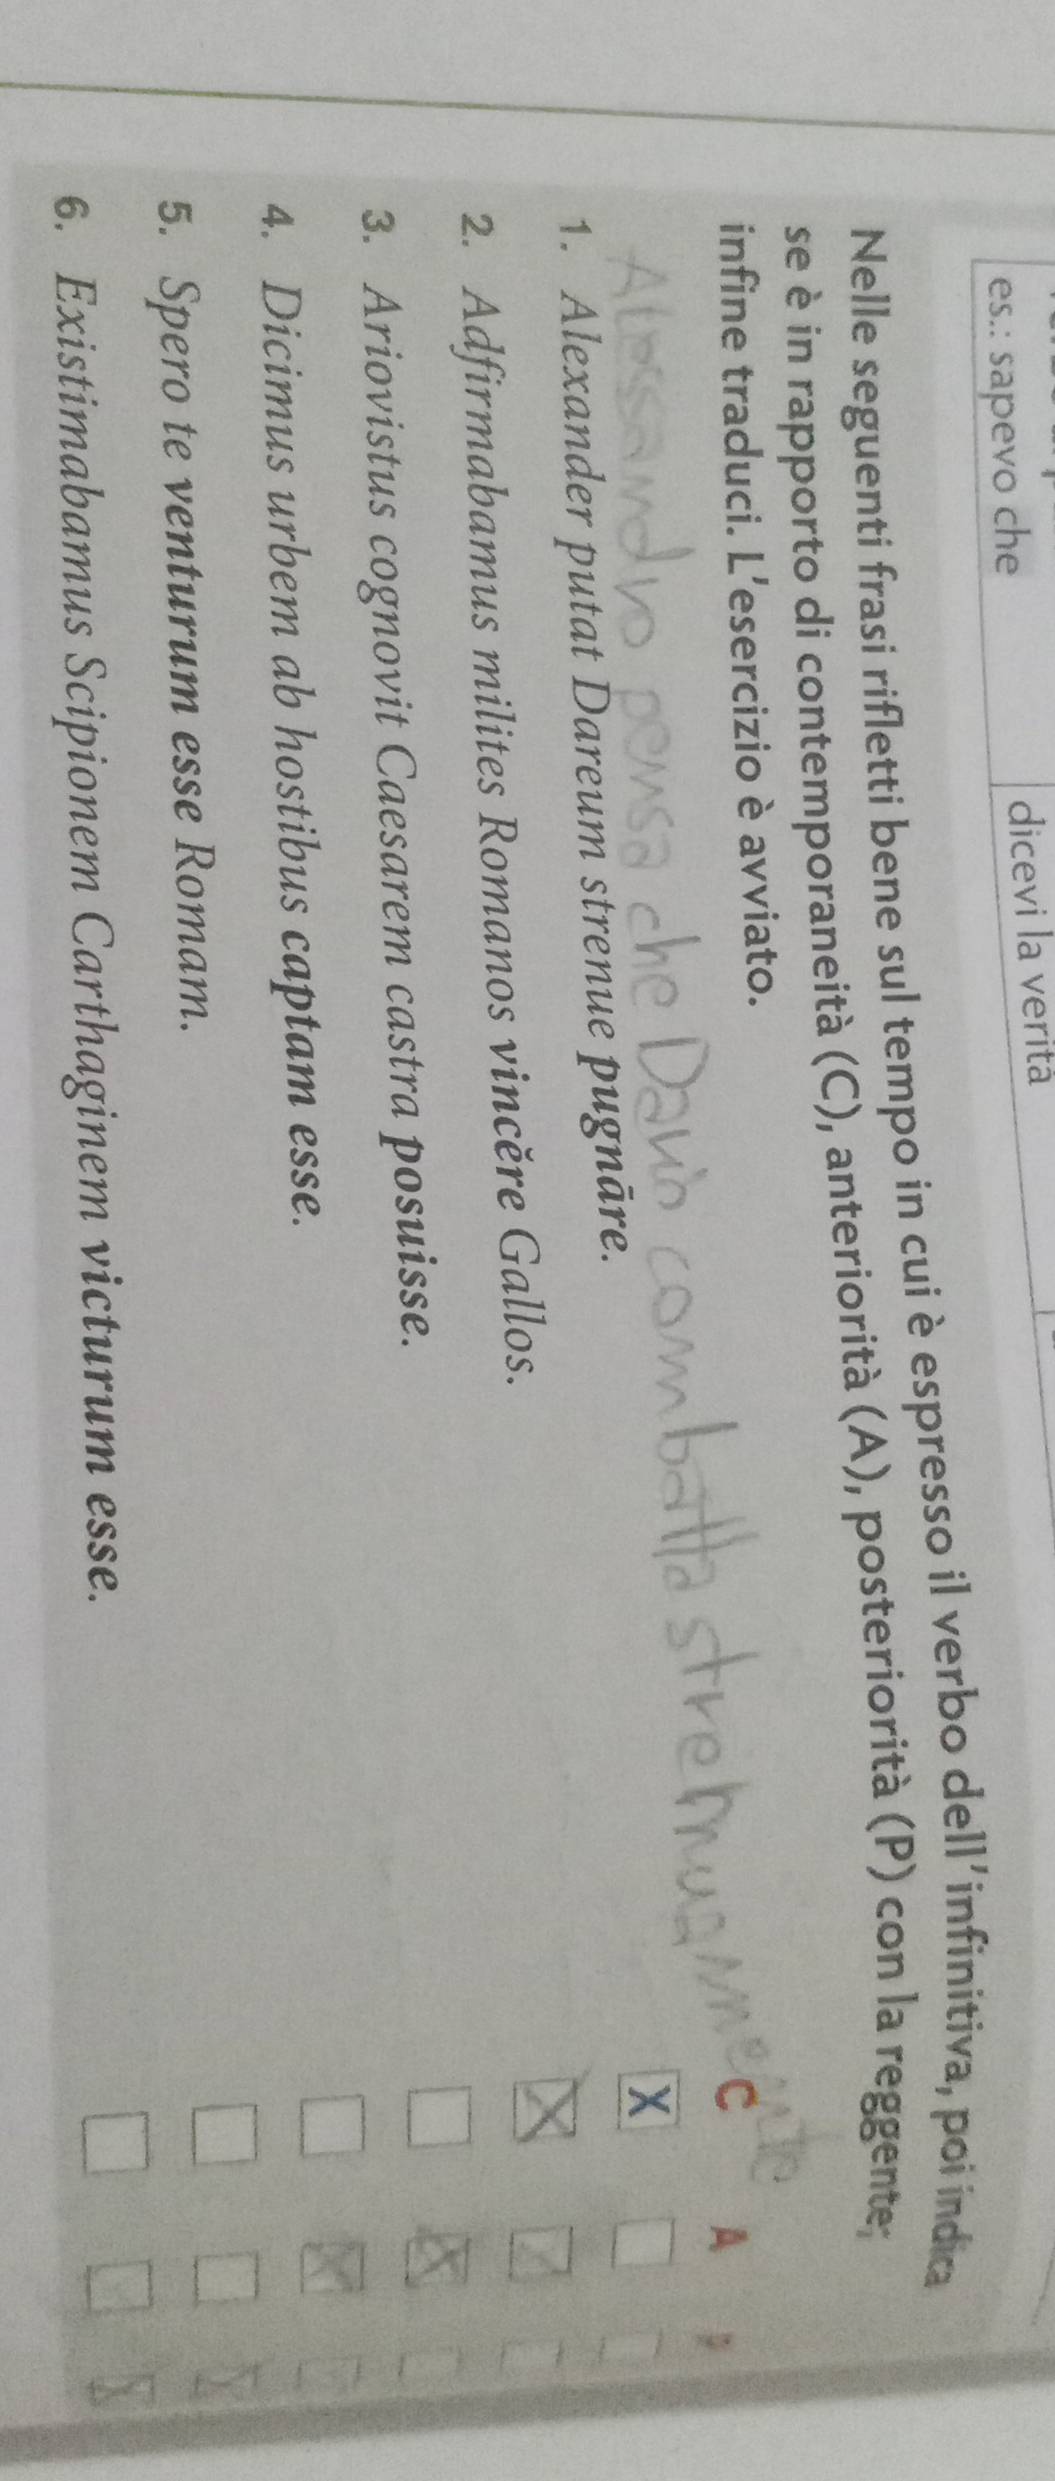 es.: sapevo che dicevi la verità
Nelle seguenti frasi rifletti bene sul tempo in cui è espresso il verbo dell'infinitiva, poi indica
se è in rapporto di contemporaneità (C), anteriorità (A), posteriorità (P) con la reggente;
infine traduci. L'esercizio è avviato.
C A P
Alessandro pensa che Dario combatta strenuamente
1. Alexander putat Dareum strenue pugnāre. X
2. Adfirmabamus milites Romanos vincĕre Gallos. X
3. Ariovistus cognovit Caesarem castra posuisse. X
4. Dicimus urbem ab hostibus captam esse. X
5. Spero te venturum esse Romam. X
6. Existimabamus Scipionem Carthaginem victurum esse. X